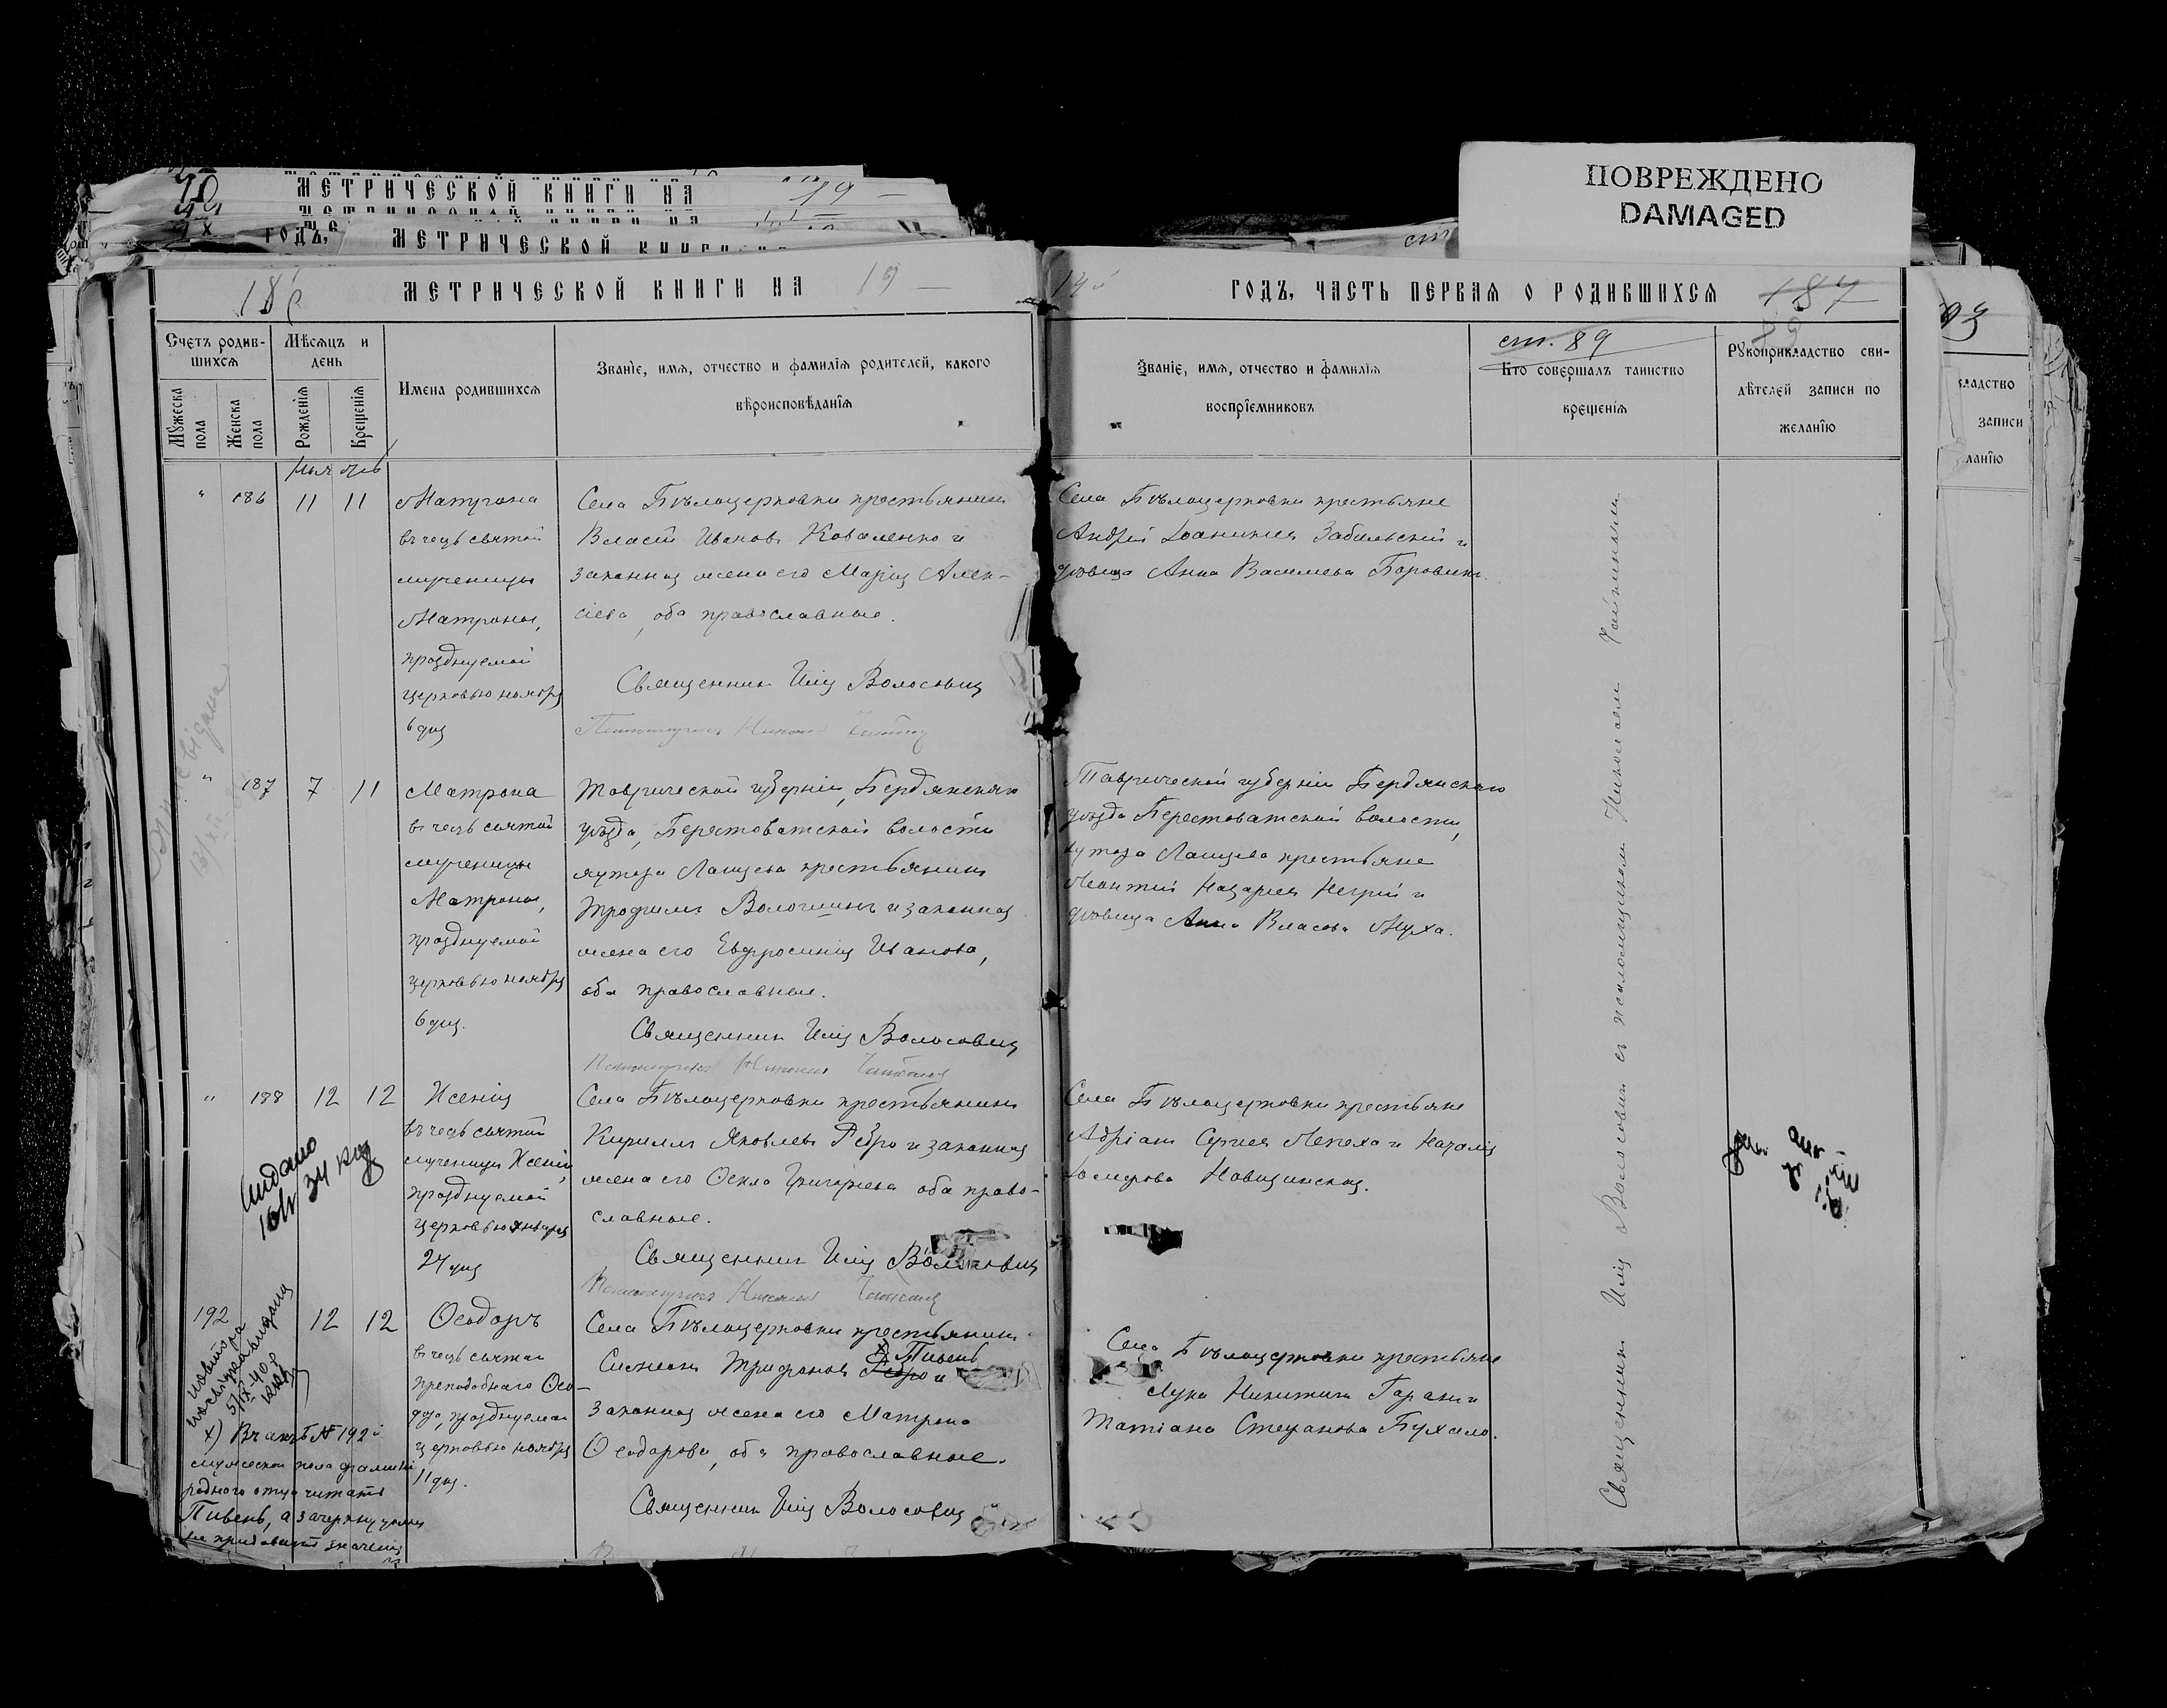 МЕТРИЧЕСКОЙ КНИГИ НА 19
ГОДЪ,
МЕТРИЧЕСКОЙ КНИГИ НА
ПОВРЕЖДЕНО
DAMAGED
МЕТРИЧЕСКОЙ КНИГИ НА 19
ГОДЪ, ЧАСТЬ ПЕРВАЯ О РОДИВШИХСЯ 187
Счетъ родив-
шихся
Мѣсяцъ и
день
Мужеска
пола
Женска
пола
Рожденія
Крещенія
Имена родившихся
Званіе, имя, отчество и фамилія родителей, какого
вѣроисповѣданія
Званіе, имя, отчество и фамилія
воспріемниковъ
ст. 89
Кто совершалъ таинство
крещенія
Рукоприкладство сви-
дѣтелей записи по
желанію
ладство
записи
ланію
Ноябрь
" 186 11 11
Матрона
въ честь святой
мученицы
Матроны,
празднуемой
церковью ноября
6 дня
Села Бѣлоцерковки крестьянинъ
Власій Ивановъ Коваленко и
законная жена его Марія Алек-
сіева, оба православные.
Священникъ Илія Волосовичъ
Села Бѣлоцерковки крестьяне
Андрей Іоанникіевъ Забильскій и
дѣвица Анна Васильева Боровикъ.
" 187 7 11
Матрона
въ честь святой
мученицы
Матроны,
празднуемой
церковью ноября
6 дня.
Таврической губерніи, Бердянскаго
уѣзда, Берестоватской волости
хутора Ланцева крестьянинъ
Трофимъ Волошинъ и законная
жена его Евфросинія Иванова,
оба православные.
Священникъ Илія Волосовичъ
Таврической губерніи Бердянскаго
уѣзда Берестоватской волости,
хутора Ланцева крестьяне
Леонтій Назаріевъ Негрій и
дѣвица Анна Власова Муха.
" 188 12 12
Ксенія
въ честь святой
мученицы Ксеніи,
празднуемой
церковью января
24 дня
Села Бѣлоцерковки крестьянинъ
Кириллъ Яковлевъ Ребро и законная
жена его Ѳекла Григорьева оба право-
славные.
Священникъ Илія Волосовичъ
Села Бѣлоцерковки крестьяне
Адріанъ Сергіевъ Лепеха и Наталія
Новицинская.
192 12 12
Ѳеодоръ
въ честь святаго
преподобнаго Ѳео-
дора, празднуемаго
церковью ноября
11 дня.
Села Бѣлоцерковки крестьянинъ
Симеонъ Трифоновъ Ребро и х) Пивень
законная жена его Матрона
Ѳеодорова, оба православные.
Священникъ Илія Волосовичъ
Села Бѣлоцерковки крестьяне
Лука Никитинъ Гаранъ и
Татіана Стефанова Бухало.
х) Въ актѣ № 192 й
мужеской пола фамилію
родного отца читать
Пивень, а зачеркнутому
не придавать значенія
Священникъ Илія Волосовичъ съ псаломщикомъ Николаемъ